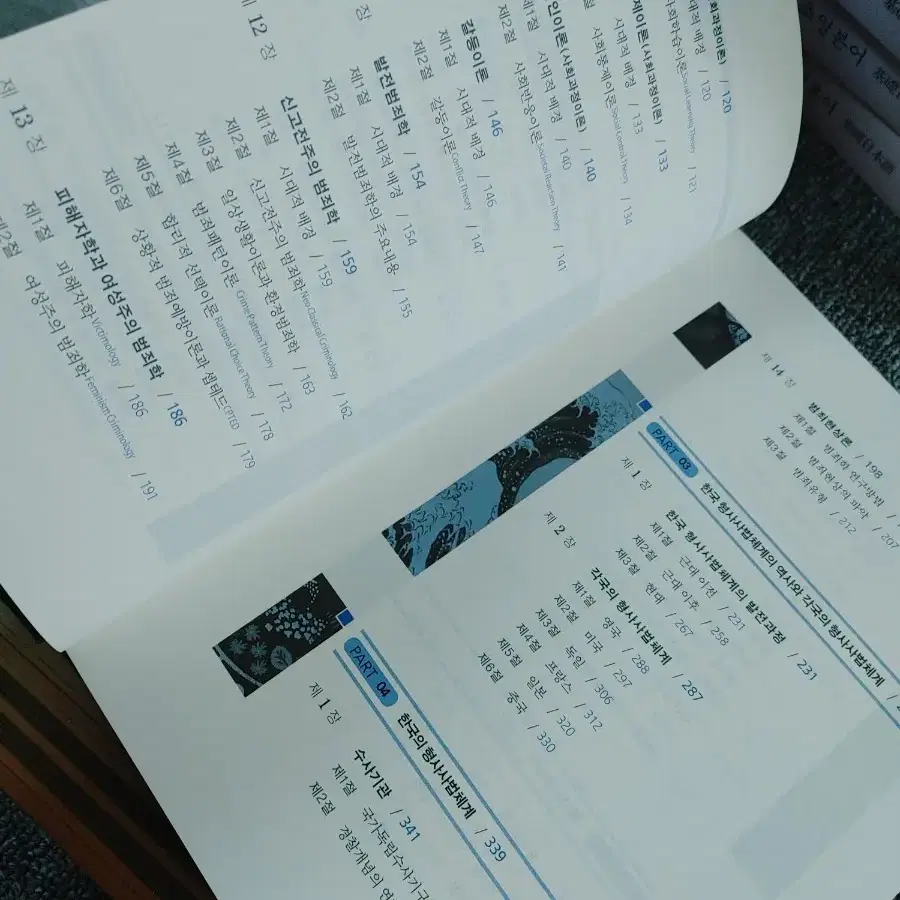 사회과정이론) / 120
시대적 배경 / 120
사회학습이론 Social Learning Theory / 121
통제이론(사회과정이론) / 133
시대적 배경 / 133
사회통제이론 Social Control Theory / 134
낙인이론(사회과정이론) / 140
제1절 시대적 배경 / 140
제2절 사회반응이론 Societal Reaction Theory / 141
장
갈등이론 / 146
제1절 시대적 배경 / 146
제2절 갈등이론 Conflict Theory / 147
발전범죄학 / 154
제1절 시대적 배경 / 154
제2절 발전범죄학의 주요내용 / 155
제 12 장
신고전주의 범죄학 / 159
제1절 시대적 배경 / 159
제2절 신고전주의 범죄학 Neo Classical Criminology / 162
제3절 일상생활이론과 환경범죄학 / 163
제4절 범죄패턴이론 Crime Pattern Theory / 172
제5절 합리적 선택이론 Rational Choice Theory / 178
제6절 상황적 범죄예방이론과 셉테드 CPTED / 179
제 13 장
피해자학과 여성주의 범죄학 / 186
제1절 피해자학 Victimology / 186
제2절 여성주의 범죄학 Feminism Criminology / 191
제 14 장
범죄현상론 / 198
제1절 범죄학 연구방법 /
제2절 범죄현상의 파악 / 207
제3절 범죄유형 / 212
PART 03 한국 형사사법체계의 역사와 각국의 형사사법체계 /
제 1 장
한국 형사사법체계의 발전과정 / 231
제1절 근대 이전 / 231
제2절 근대 이후 / 258
제3절 현대 / 267
제 2 장
각국의 형사사법체계 / 287
제1절 영국 / 288
제2절 미국 / 297
제3절 독일 / 306
제4절 프랑스 / 312
제5절 일본 / 320
제6절 중국 / 330
PART 04 한국의 형사사법체계 / 339
제 1 장
수사기관 / 341
제1절 국가독립수사기구
제2절 경찰개념의
일본어
基礎日本語